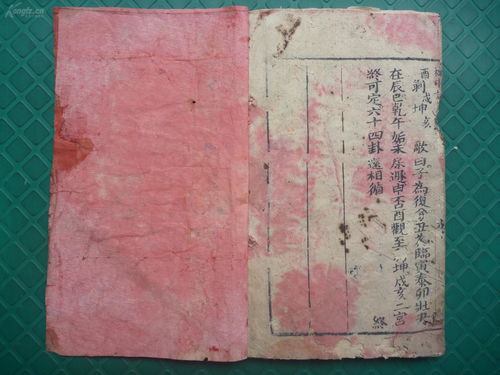 酉剝戌坤亥 歌曰子為復兮丑為臨寅泰卯壯
在辰巳乾午姤未遯申否酉觀至坤戌亥二宮
終可定六十四卦還相循
終
Kongfz.cn